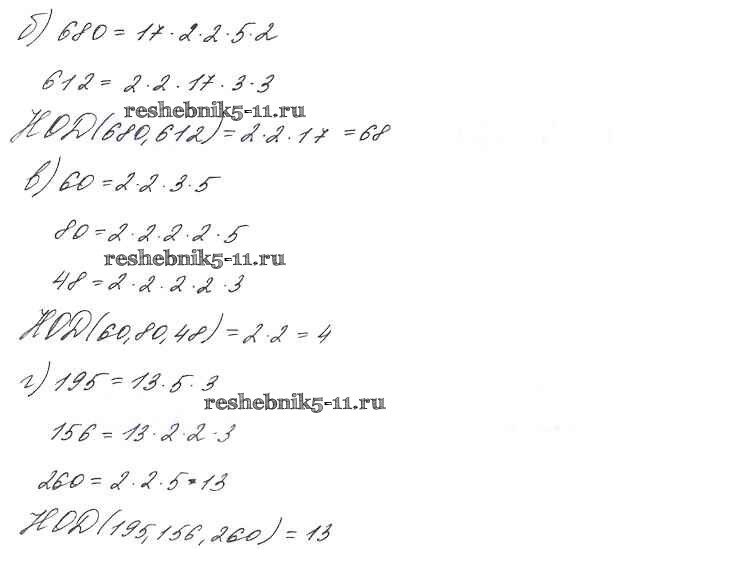 б) 680 = 17 · 2 · 2 · 5 · 2
612 = 2 · 2 · 17 · 3 · 3
reshebnik5-11.ru
НОД(680,612) = 2 · 2 · 17 = 68
в) 60 = 2 · 2 · 3 · 5
80 = 2 · 2 · 2 · 2 · 5
reshebnik5-11.ru
48 = 2 · 2 · 2 · 2 · 3
НОД(60,80,48) = 2 · 2 = 4
г) 195 = 13 · 5 · 3
reshebnik5-11.ru
156 = 13 · 2 · 2 · 3
260 = 2 · 2 · 5 · 13
НОД(195,156,260) = 13